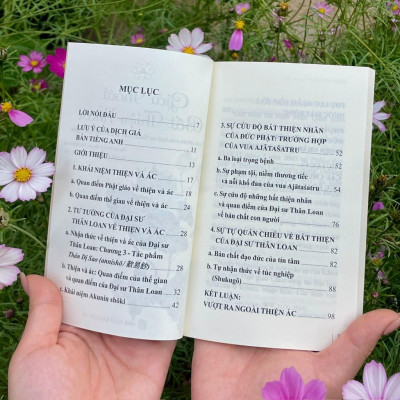 MỤC LỤC
LỜI NÓI ĐẦU 7
LƯU Ý CỦA DỊCH GIẢ
BẢN TIẾNG ANH 11
GIỚI THIỆU 13
1. KHÁI NIỆM THIỆN VÀ ÁC 18
a. Quan điểm Phật giáo về thiện và ác 18
b. Quan điểm thế gian về thiện và ác 24
2. TƯ TƯỞNG CỦA ĐẠI SƯ
THÂN LOAN VỀ THIỆN VÀ ÁC 28
a. Nhận thức về thiện và ác của Đại sư
Thân Loan: Chương 3 - Tác phẩm
Thán Dị Sao (tannishō/歎異鈔) 28
b. Thiện và ác: Quan điểm của thế gian
và quan điểm của Đại sư Thân Loan 32
c. Khái niệm Akunin shōki 42
3. SỰ CỨU ĐỘ BẤT THIỆN NHÂN
CỦA ĐỨC PHẬT: TRƯỜNG HỢP
CỦA VUA AJĀTAŚATRU 52
a. Ba loại trọng bệnh 52
b. Sự phạm tội, niềm thương tiếc
và nỗi khổ đau của vua Ajātaśatru 54
c. Sự cứu độ những bất thiện nhân
và quan điểm của Đại sư Thân Loan
về bản chất con người 76
4. SỰ TỰ QUÁN CHIẾU VỀ BẤT THIỆN
CỦA ĐẠI SƯ THÂN LOAN 82
a. Bản chất đạo đức của tín tâm 82
b. Tự nhận thức về túc nghiệp
(Shukugō) 86
KẾT LUẬN:
VƯỢT RA NGOÀI THIỆN ÁC 98